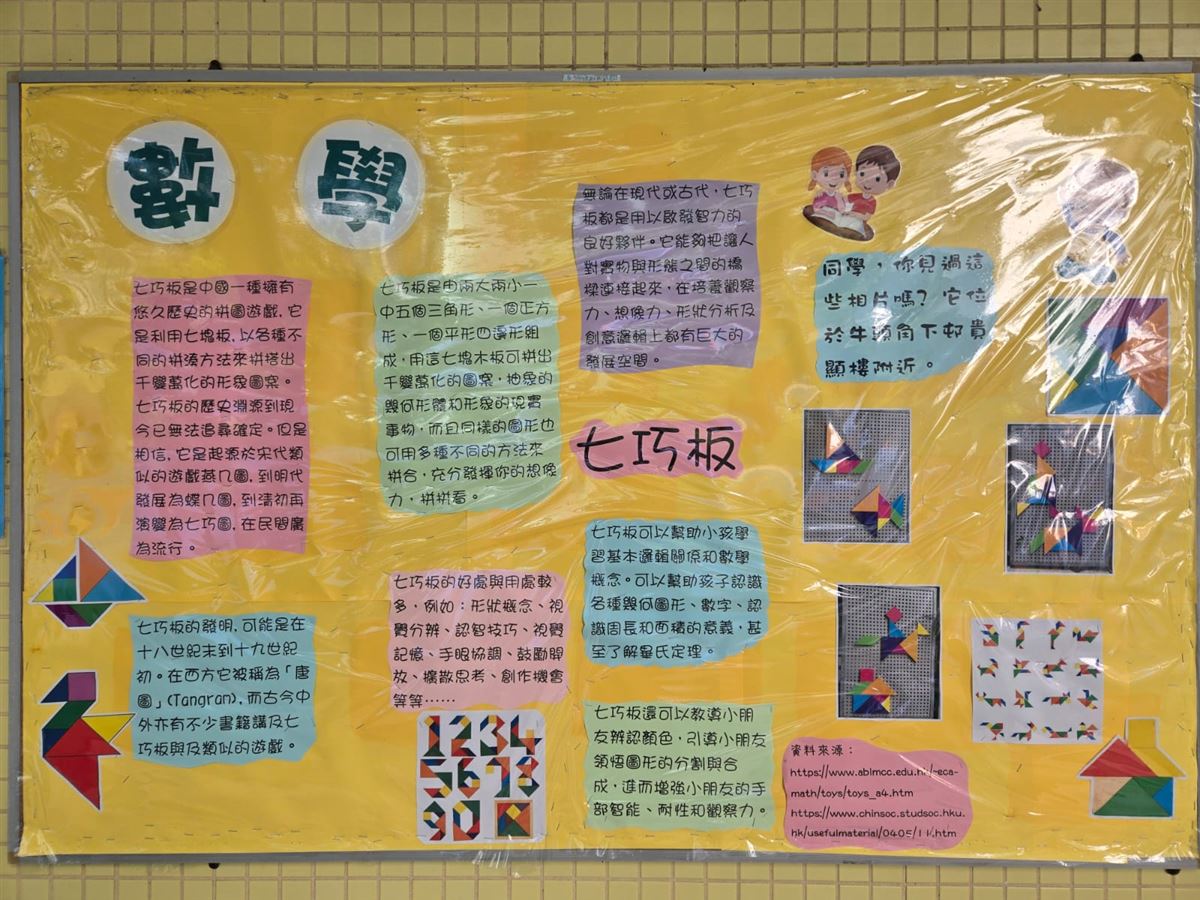 數 學
七巧板是中國一種擁有
悠久歷史的拼圖遊戲，它
是利用七塊板，以各種不
同的拼湊方法來拼搭出
千變萬化的形象圖案。
七巧板的歷史淵源到現
今已無法追尋確定。但是
相信，它是起源於宋代類
似的遊戲燕几圖，到明代
發展為蝶几圖，到清初再
演變為七巧圖，在民間廣
為流行。
七巧板的發明，可能是在
十八世紀末到十九世紀
初。在西方它被稱為「唐
圖」(Tangran)，而古今中
外亦有不少書籍講及七
巧板與及類似的遊戲。
七巧板是由兩大兩小一
中五個三角形、一個正方
形、一個平形四邊形組
成，用這七塊木板可拼出
千變萬化的圖案，抽象的
幾何形體和形象的現實
事物，而且同樣的圖形也
可用多種不同的方法來
拼合，充分發揮你的想像
力，拼拼看。
七巧板的好處與用處較
多，例如：形狀概念、視
覺分辨、認智技巧、視覺
記憶、手眼協調、鼓勵開
放、擴散思考、創作機會
等等……
1234
5678
90
無論在現代或古代，七巧
板都是用以啟發智力的
良好夥伴。它能夠把讓人
對實物與形態之間的橋
樑連接起來，在培養觀察
力、想像力、形狀分析及
創意邏輯上都有巨大的
發展空間。
七巧板
七巧板可以幫助小孩學
習基本邏輯關係和數學
概念。可以幫助孩子認識
各種幾何圖形、數字、認
識周長和面積的意義，甚
至了解畢氏定理。
七巧板還可以教導小朋
友辨認顏色，引導小朋友
領悟圖形的分割與合
成，進而增強小朋友的手
部智能、耐性和觀察力。
同學，你見過這
些相片嗎？它位
於牛頭角下邨貴
顯樓附近。
資料來源：
https://www.ablmcc.edu.hk/~eca-
math/toys/toys_a4.htm
https://www.chinsoc.studsoc.hku.
hk/usefulmaterial/0405/11.htm